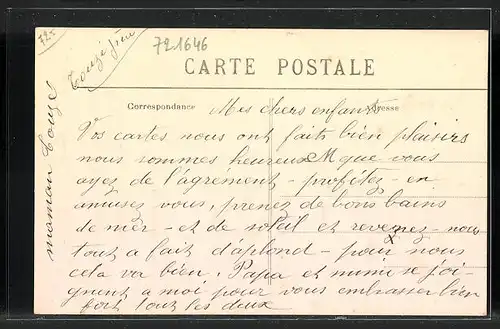 725
721646
Touzé père
CARTE POSTALE
Correspondance
Adresse
Mes chers enfants
Vos cartes nous ont faits bien plaisirs
nous sommes heureux M que vous
ayez de l'agrément - profitez - en
amusez vous, prenez de bons bains
de mer - et de soleil et revenez - nous
tout a fait d'aplond - pour nous
cela va bien. Papa et mimi se joi-
gnent a moi pour vous embrasser bien
fort tout les deux
maman Touzé